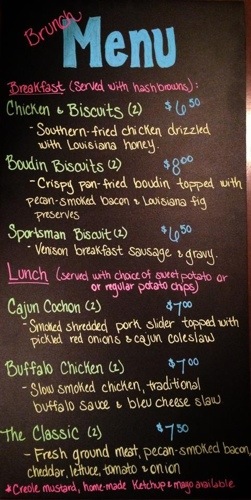 Brunch
Menu
Breakfast (served with hashbrowns):
Chicken & Biscuits (2) $6.50
- Southern-fried chicken drizzled
with Louisiana honey.
Boudin Biscuits (2) $8.00
- Crispy pan-fried boudin topped with
pecan-smoked bacon & Louisiana fig
preserves
Sportsman Biscuit (2) $6.50
- Venison breakfast sausage & gravy.
Lunch (served with choice of sweet potato or
or regular potato chips)
Cajun Cochon (2) $7.00
- Smoked shredded pork slider topped with
pickled red onions & cajun coleslaw
Buffalo Chicken (2) $7.00
- Slow smoked chicken, traditional
buffalo sauce & bleu cheese slaw
The Classic (2) $7.50
- Fresh ground meat, pecan-smoked bacon,
cheddar, lettuce, tomato & onion
*Creole mustard, home-made Ketchup & mayo available